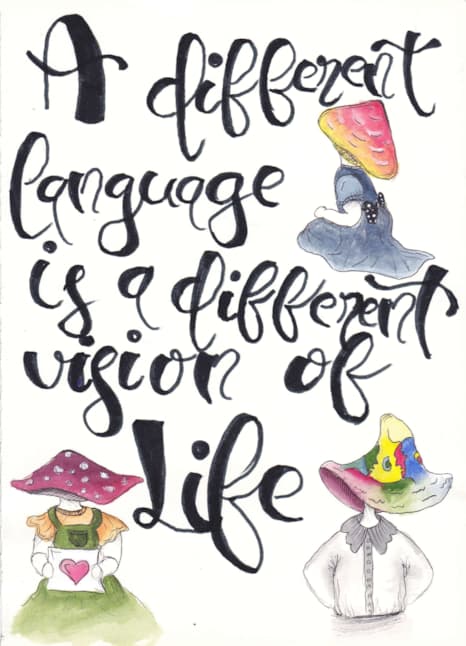 A different
language
is a different
vision of
Life